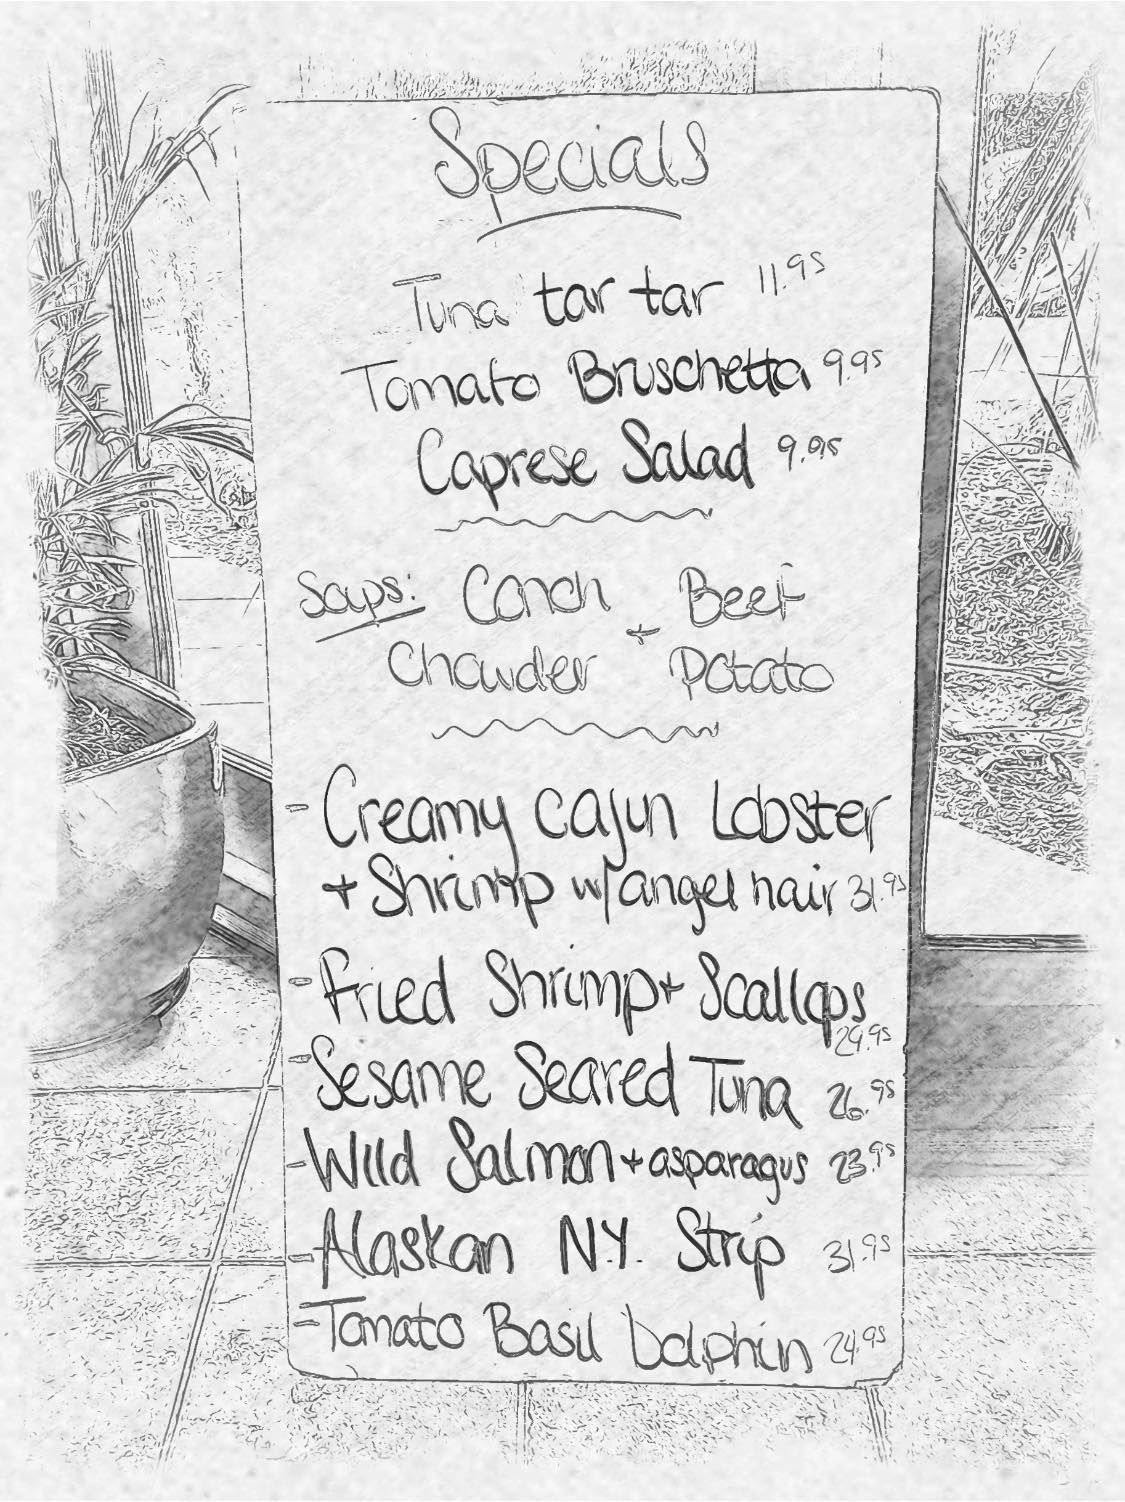 Specials
Tuna tar tar 11.95
Tomato Bruschetta 9.95
Caprese Salad 9.95
Soups: Conch + Beef
Chowder Potato
- Creamy Cajun Lobster
+ Shrimp w/ angel hair 31.95
- Fried Shrimp + Scallops
29.95
- Sesame Seared Tuna 26.95
- Wild Salmon + asparagus 23.95
- Alaskan N.Y. Strip 31.95
- Tomato Basil Dolphin 24.95